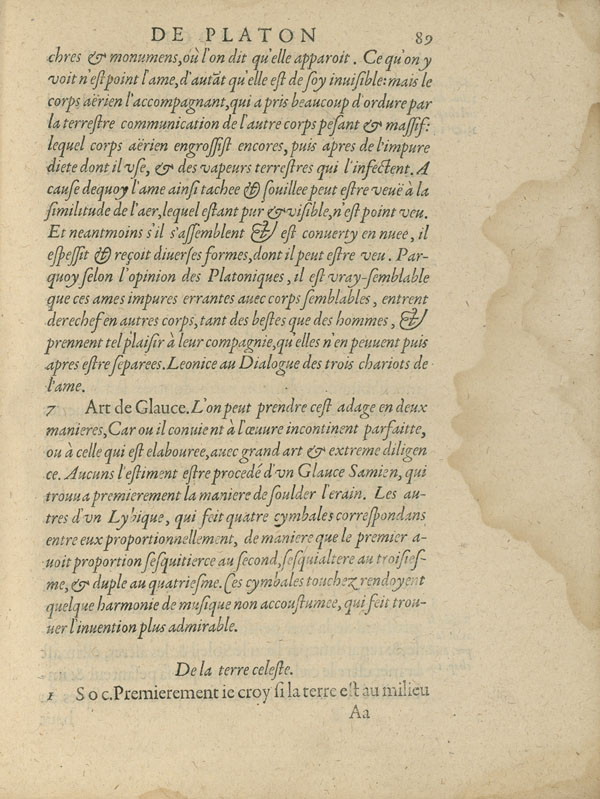 DE PLATON 89
chres & monumens, où l'on dit qu'elle apparoit. Ce qu'on y
voit n'est point l'ame, d'autãt qu'elle est de soy inuisible: mais le
corps aërien l'accompagnant, qui a pris beaucoup d'ordure par
la terrestre communication de l'autre corps pesant & massif:
lequel corps aërien engrossist encores, puis apres de l'impure
diete dont il vse, & des vapeurs terrestres qui l'infectent. A
cause dequoy l'ame ainsi tachee & souillee peut estre veuë à la
similitude de l'aer, lequel estant pur & visible, n'est point veu.
Et neantmoins s'il s'assemblent & est conuerty en nuee, il
espessit & reçoit diuerses formes, dont il peut estre veu. Par-
quoy selon l'opinion des Platoniques, il est vray-semblable
que ces ames impures errantes auec corps semblables, entrent
derechef en autres corps, tant des bestes que des hommes, &
prennent tel plaisir à leur compagnie, qu'elles n'en peuuent puis
apres estre separees. Leonice au Dialogue des trois chariots de
l'ame.
7 Art de Glauce. L'on peut prendre cest adage en deux
manieres, Car ou il conuient à l'œuure incontinent parfaitte,
ou à celle qui est elabouree, auec grand art & extreme diligen
ce. Aucuns l'estiment estre procedé d'vn Glauce Samien, qui
trouua premierement la maniere de soulder l'erain. Les au-
tres d'vn Lybique, qui feit quatre cymbales correspondans
entre eux proportionnellement, de maniere que le premier a-
uoit proportion sesquitierce au second, sesquialtere au troisies-
me, & duple au quatriesme. Ces cymbales touchez rendoyent
quelque harmonie de musique non accoustumee, qui feit trou-
uer l'inuention plus admirable.
De la terre celeste.
1 Soc. Premierement ie croy si la terre est au milieu
Aa